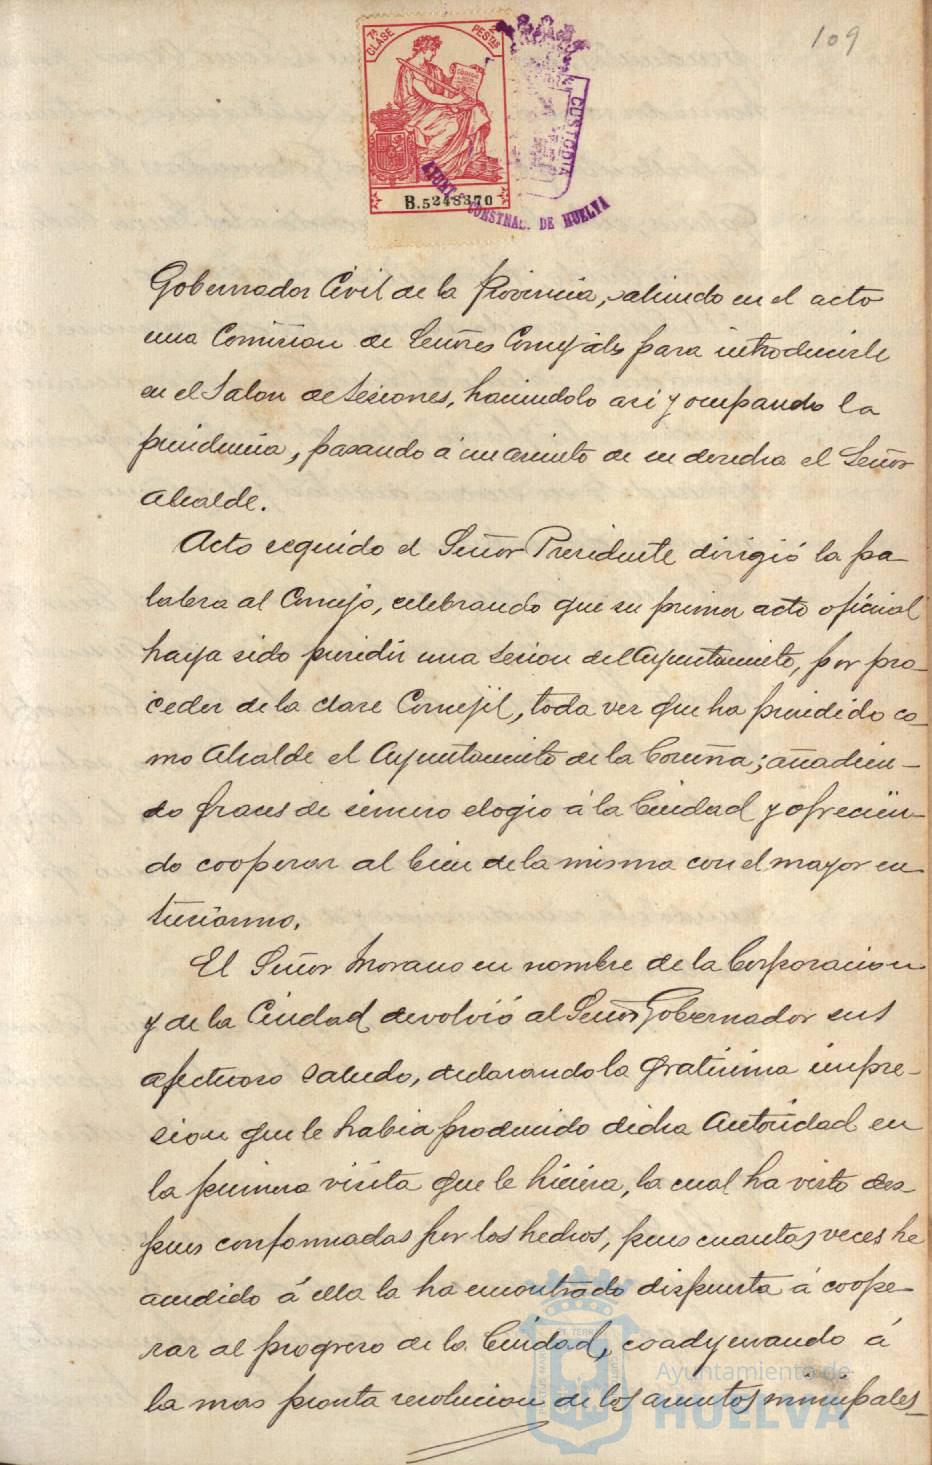 109
7ª CLASE
2 PESETAS
B.5248370
CUSTODIA
AYUNT. CONSTNAL. DE HUELVA
Gobernador Civil de la Provincia, saliendo en el acto
una Comision de Señores Concejales para introducirle
en el Salon de Sesiones, haciendolo asi y ocupando la
presidencia, pasando á un asiento de su derecha el Señor
Alcalde.
Acto seguido el Señor Presidente dirigió la pa-
labra al Concejo, celebrando que su primer acto oficial
haya sido presidir una sesion del Ayuntamiento, por pro-
ceder de la clase Concejil, toda vez que ha presidido co-
mo Alcalde el Ayuntamiento de la Coruña; añadien-
do frases de sincero elogio á la Ciudad y ofrecien-
do cooperar al bien de la misma con el mayor en
tusiasmo.
El Señor Morano en nombre de la Corporacion
y de la Ciudad devolvió al Señor Gobernador su
afectuoso saludo, declarando la gratisima impre-
sion que le habia producido dicha Autoridad en
la primera visita que le hiciera, la cual ha visto des-
pues confirmadas por los hechos, pues cuantas veces ha
acudido á ella la ha encontrado dispuesta á coope-
rar al progreso de la Ciudad, coadyuvando á
la mas pronta resolucion de los asuntos municipales
Ayuntamiento de
HUELVA